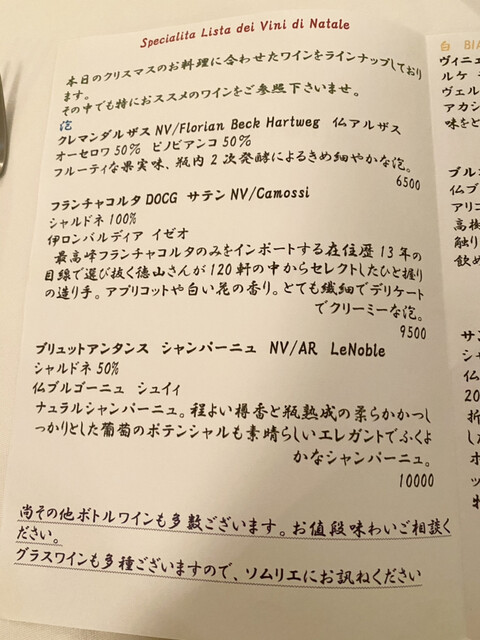 Specialita Lista dei Vini di Natale
本日のクリスマスのお料理に合わせたワインをラインナップしており
ます。
その中でも特におススメのワインをご参照下さいませ。
泡
クレマンダルザス NV/Florian Beck Hartweg 仏アルザス
オーセロワ 50% ピノビアンコ 50%
フルーティな果実味、瓶内2次発酵によるきめ細やかな泡。
6500
フランチャコルタ DOCG サテン NV/Camossi
シャルドネ 100%
伊ロンバルディア イゼオ
最高峰フランチャコルタのみをインポートする在住歴 13 年の
目線で選び抜く徳山さんが 120 軒の中からセレクトしたひと握り
の造り手。アプリコットや白い花の香り。とても繊細でデリケート
でクリーミーな泡。
9500
ブリュットアンタンス シャンパーニュ NV/AR LeNoble
シャルドネ 50%
仏ブルゴーニュ シュイィ
ナュラルシャンパーニュ。程よい樽香と瓶熟成の柔らかかつし
っかりとした葡萄のポテンシャルも素晴らしいエレガントでふくよ
かなシャンパーニュ。
10000
尚その他ボトルワインも多数ございます。お値段味わいご相談く
ださい。
グラスワインも多種ございますので、ソムリエにお訊ねください
白 BIA
ヴィニェ
ルケ
ヴェル
アカシ
味をと
ブル
仏ブ
アリゴ
高樹
触り
飲め
サン
シャ
仏
20
折
した
ホ
ッ